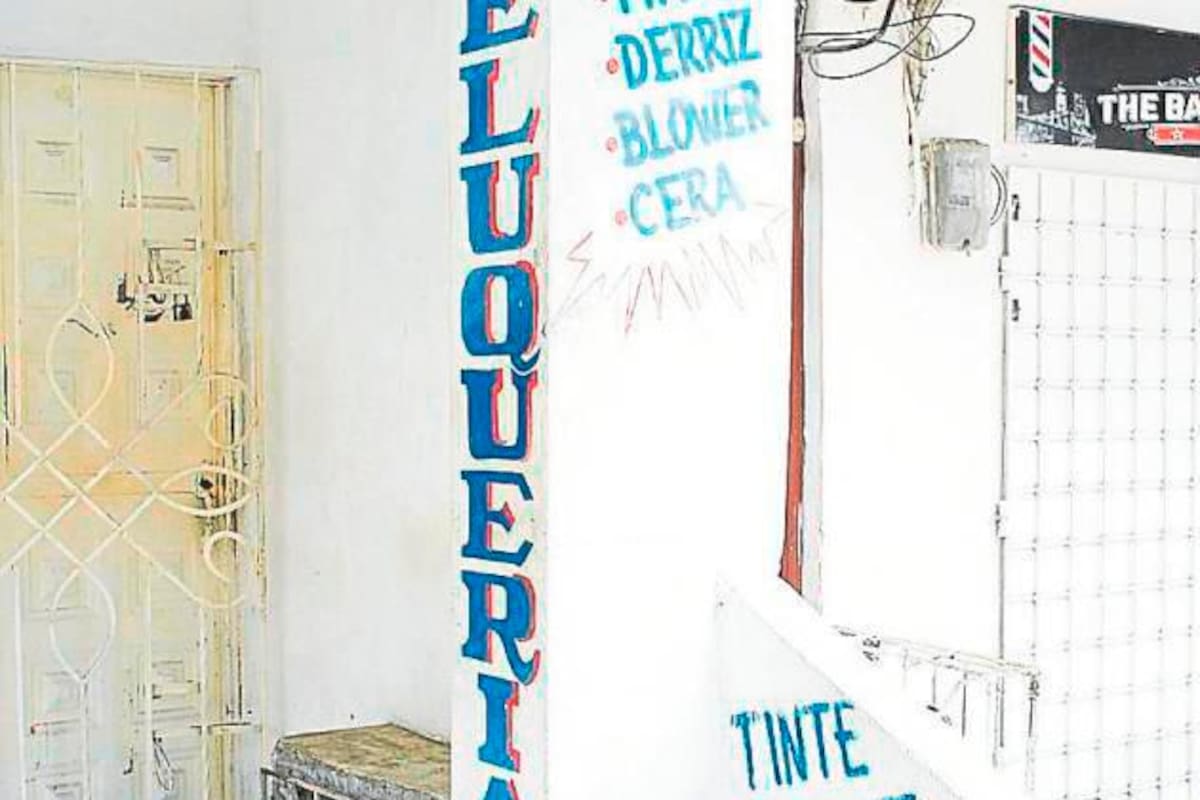 ELUQUERIA
DERRIZ
BLOWER
CERA
THE BA
TINTE